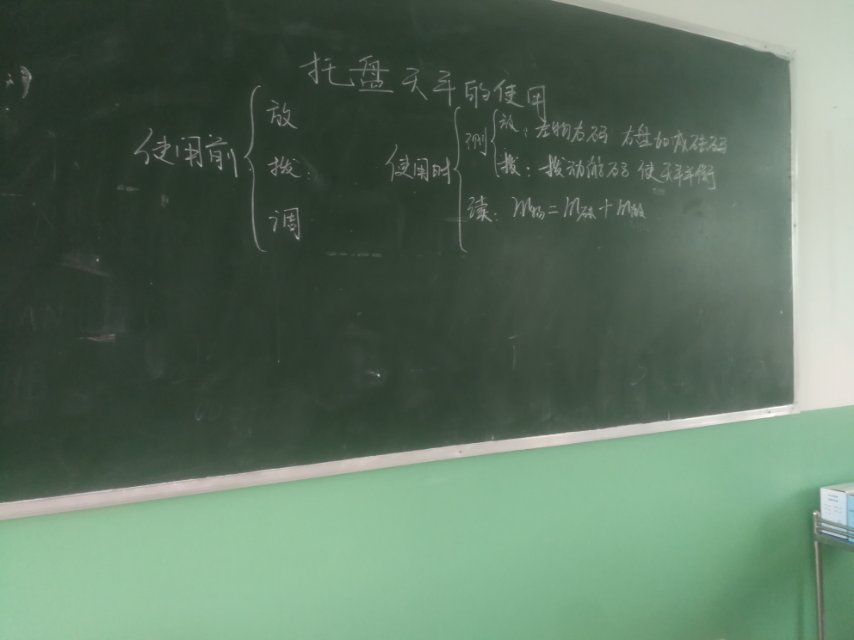 托盘天平的使用
使用前
放
拨
调
使用时
测
放：左物右码 右盘加减砝码
拨：拨动游码 使天平平衡
读：m物=m砝+m游